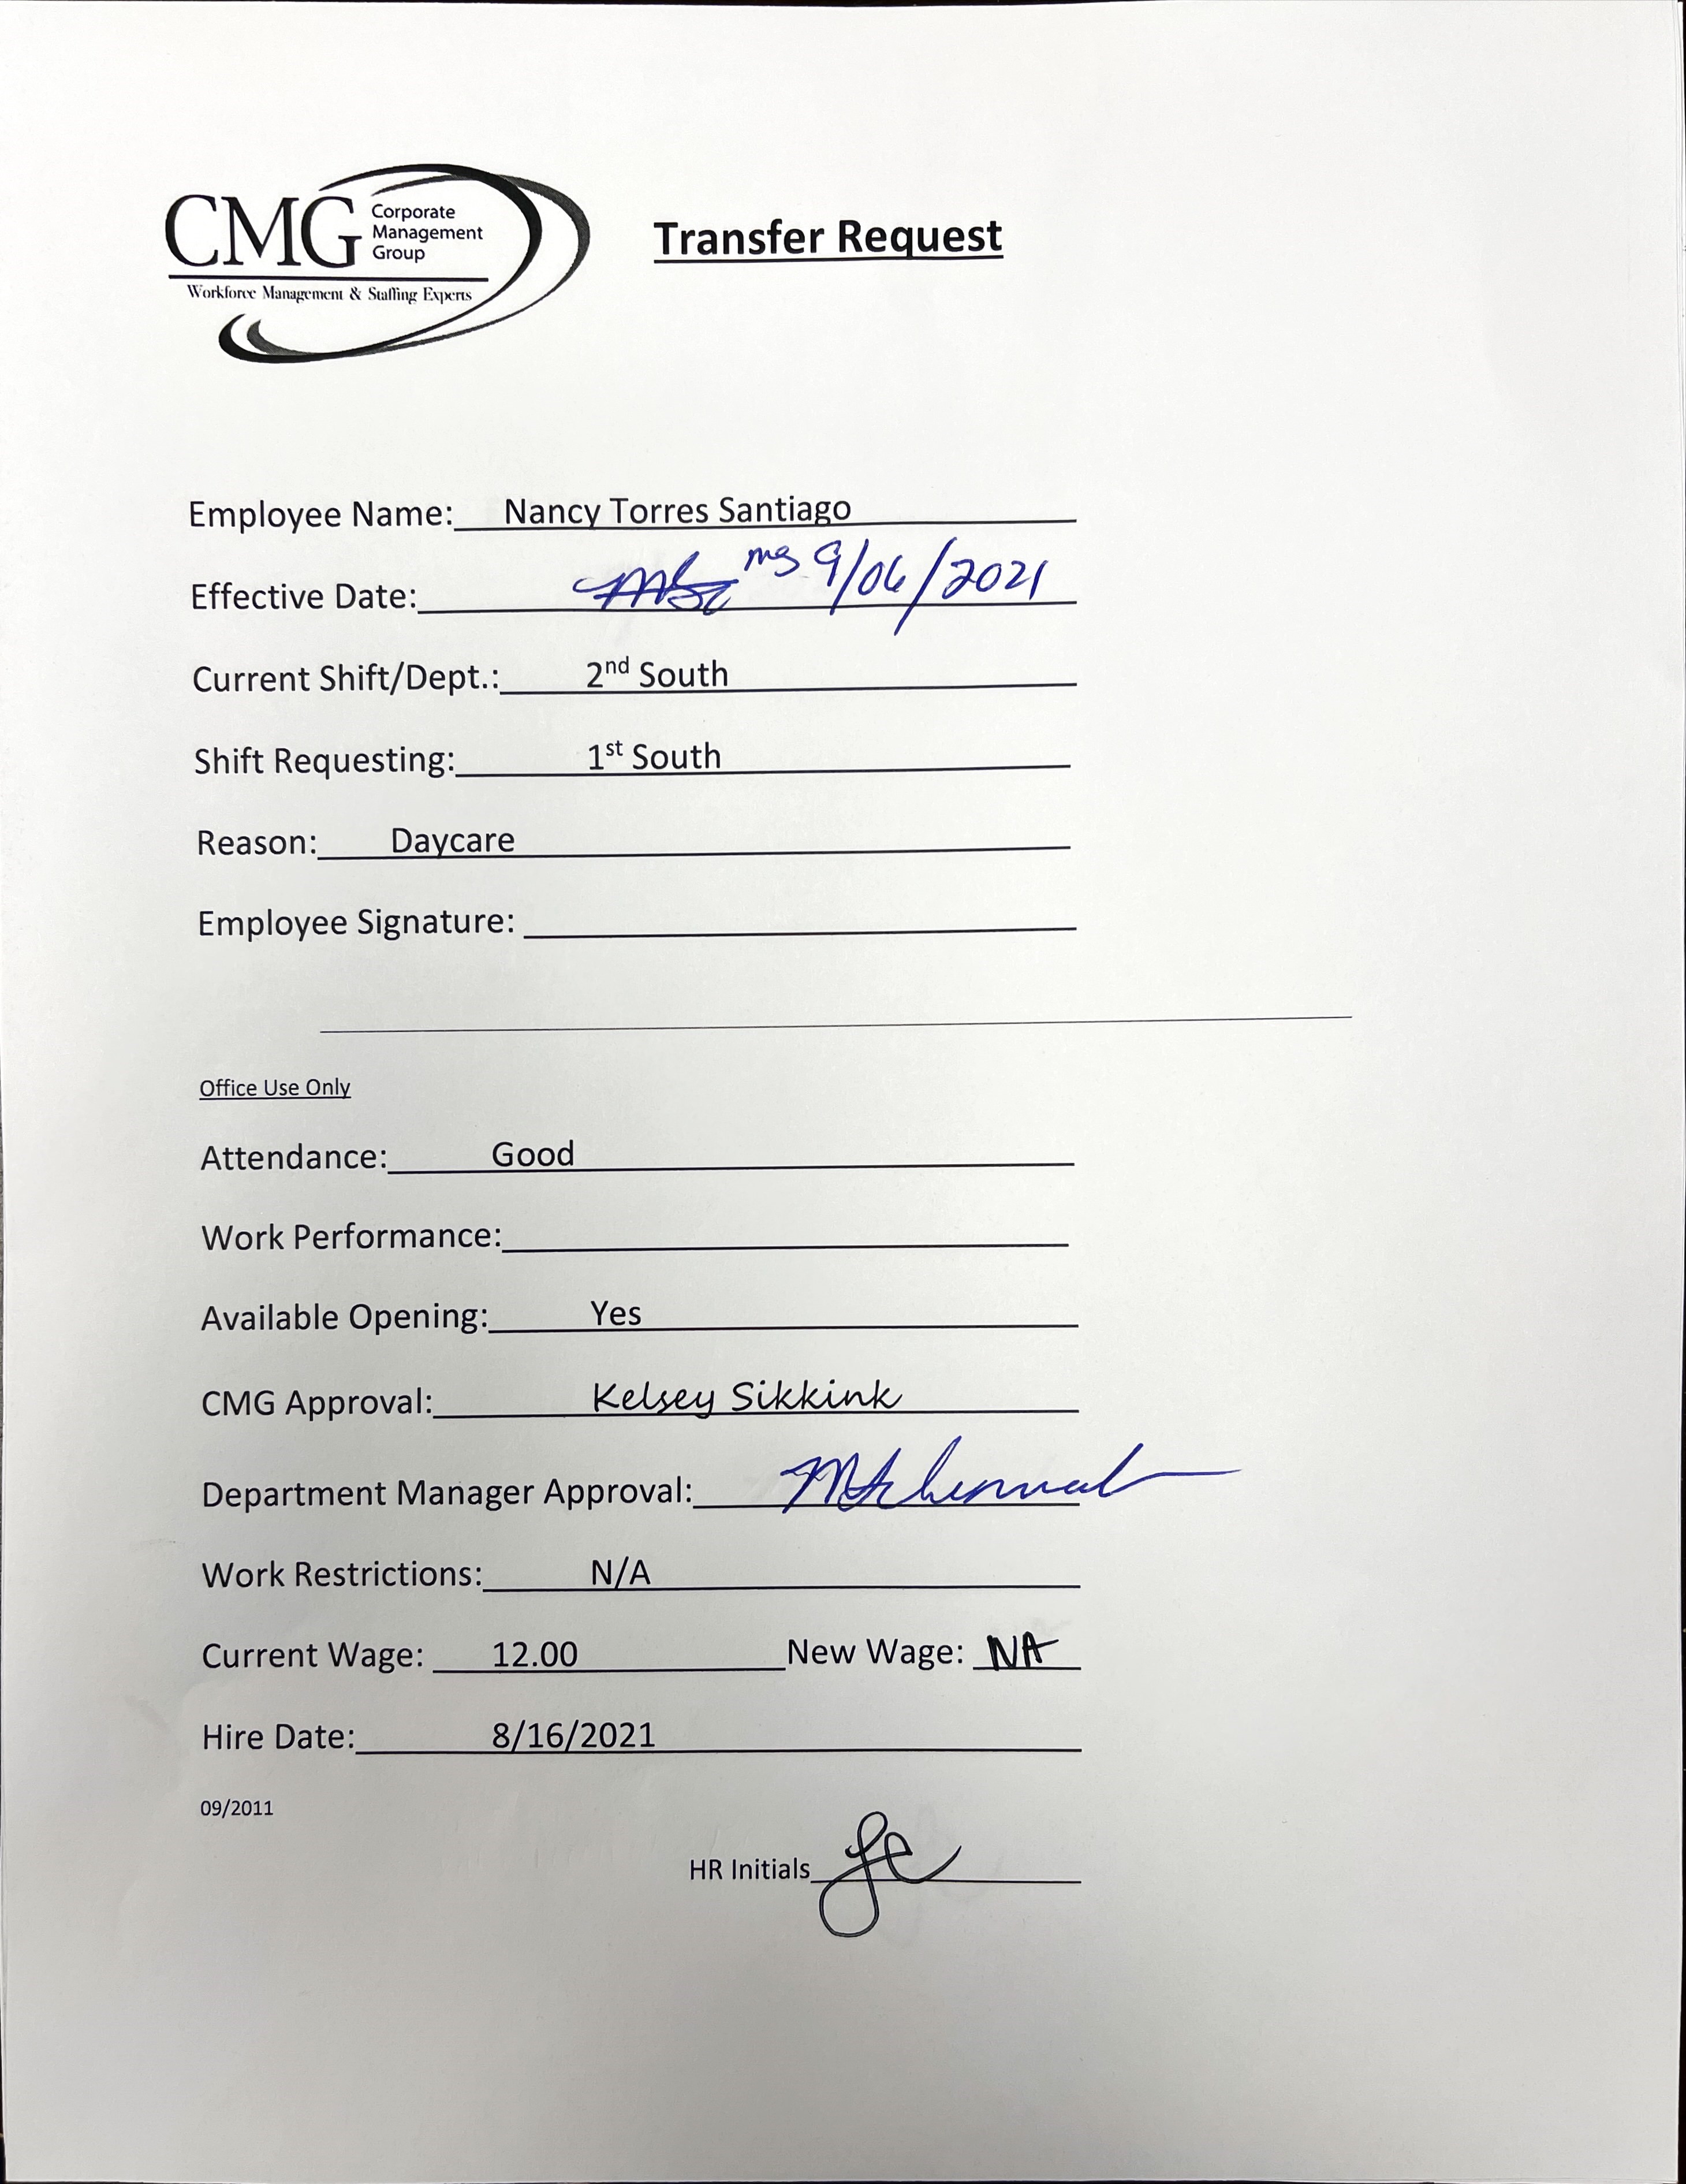 CMG Corporate Management Group
Workforce Management & Staffing Experts
Transfer Request
Employee Name: Nancy Torres Santiago
Effective Date: ms 9/06/2021
Current Shift/Dept.: 2nd South
Shift Requesting: 1st South
Reason: Daycare
Employee Signature:
Office Use Only
Attendance: Good
Work Performance:
Available Opening: Yes
CMG Approval: Kelsey Sikkink
Department Manager Approval:
Work Restrictions: N/A
Current Wage: 12.00 New Wage: NA
Hire Date: 8/16/2021
09/2011
HR Initials